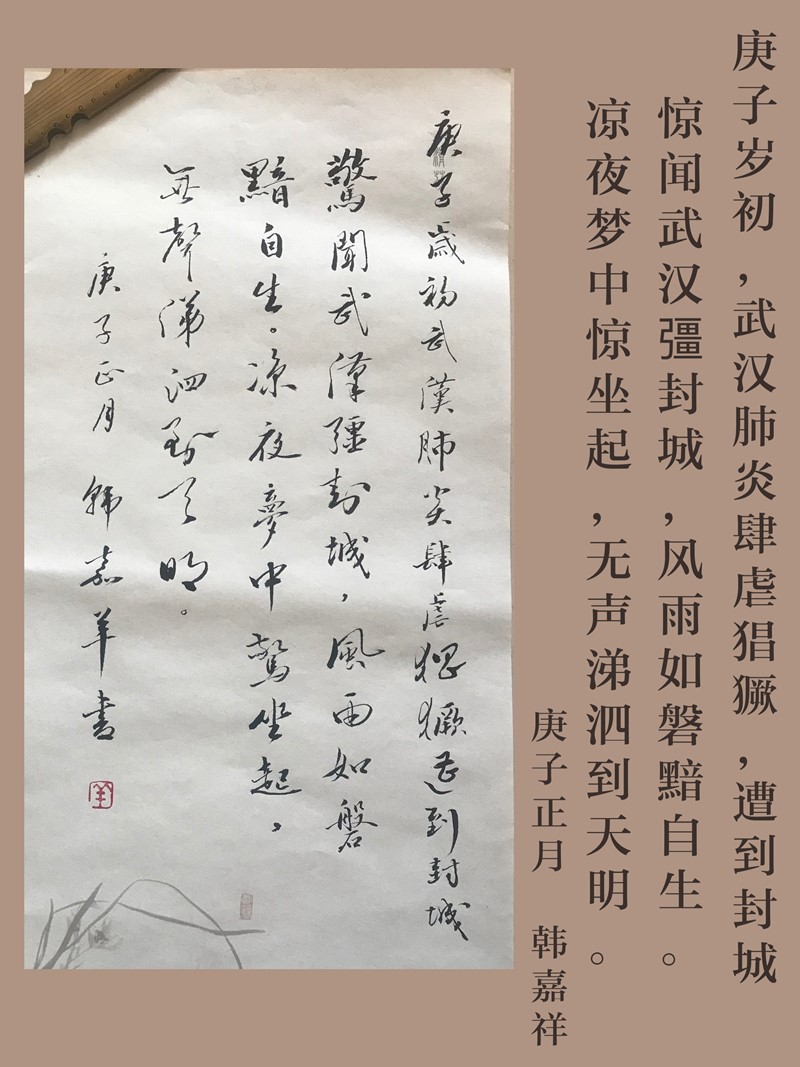 庚子岁初，武汉肺炎肆虐猖獗，遭到封城
惊闻武汉彊封城，风雨如磐黯自生。
凉夜梦中惊坐起，无声涕泗到天明。
庚子正月 韩嘉祥
庚子歲初武漢肺炎肆虐猖獗遭到封城
驚聞武漢彊封城，風雨如磐
黯自生。凉夜夢中驚坐起，
無聲涕泗到天明。
庚子正月 韩嘉羊書